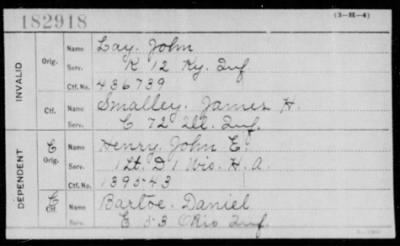 182918
(3-M-4)
INVALID
Orig.
Name Lay, John
Serv. K 12 Ky. Inf
Ctf. No. 436739
Ctf.
Name Smalley, James H.
Serv. C 72 Ill. Inf.
DEPENDENT
Orig.
Name Henry, John E.
Serv. 1 Lt. D 1 Wis. H. A.
Ctf. No. 139543
Name Bartoe, Daniel
Serv. E 53 Ohio Inf.